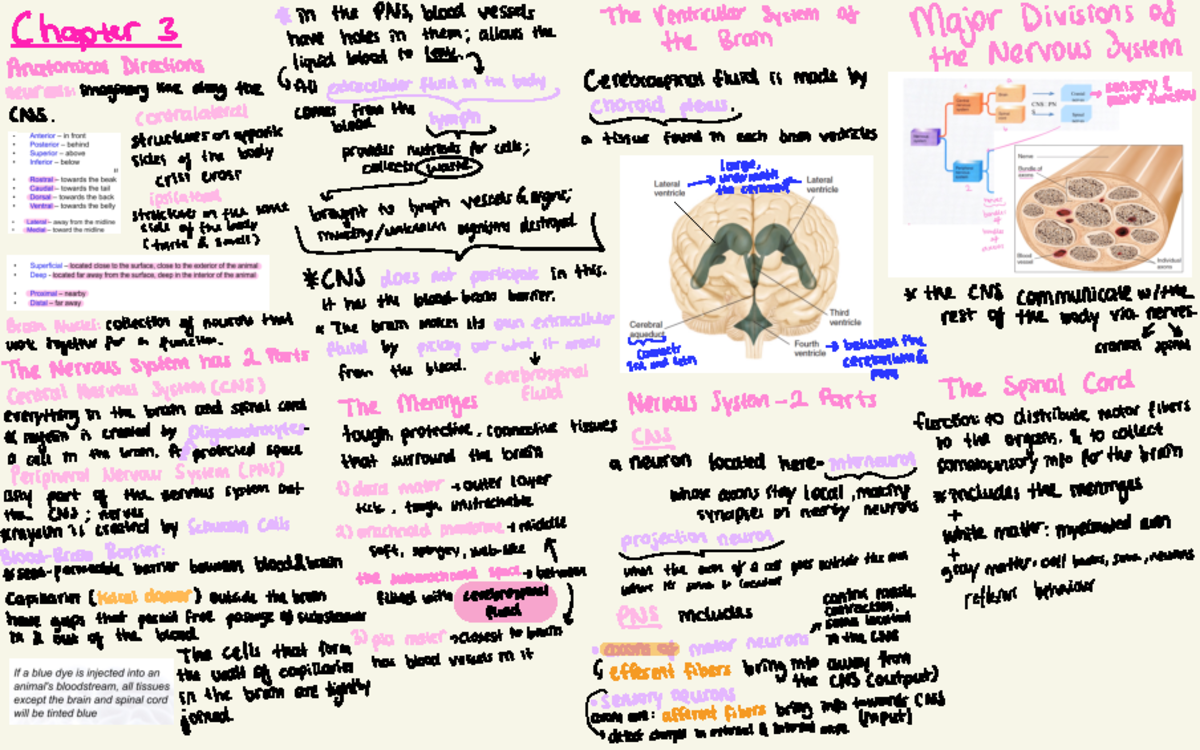 Chapter 3
Anatomical Directions
neuraxis: imaginary line along the
CNS.
contralateral
structures on opposite
sides of the body
criss cross
ipsilateral
structures on the same
side of the body
(taste & smell)
Anterior – in front
Posterior – behind
Superior – above
Inferior – below
Rostral – towards the beak
Caudal – towards the tail
Dorsal – towards the back
Ventral – towards the belly
Lateral – away from the midline
Medial – toward the midline
Superficial – located close to the surface, close to the exterior of the animal
Deep - located far away from the surface, deep in the interior of the animal
Proximal – nearby
Distal – far away
Brain Nuclei: collection of neurons that
work together for a function.
The Nervous System has 2 Parts
Central Nervous System (CNS)
everything in the brain and spinal cord
* myelin is created by Oligodendrocytes-
a cell in the brain. A protected space
Peripheral Nervous System (PNS)
any part of the nervous system out
the CNS; nerves
*myelin is created by Schwann Cells
Blood-Brain Barrier:
*semi-permeable barrier between blood&brain
Capillaries ( ) outside the brain
have gaps that permit free passage of substances
in & out of the blood
If a blue dye is injected into an
animal's bloodstream, all tissues
except the brain and spinal cord
will be tinted blue
The cells that form
the wall of capillaries
in the brain are tightly
joined.
* in the PNS, blood vessels
have holes in them; allows the
liquid blood to leak.
All extracellular fluid in the body
comes from the
blood.
lymph
provides nutrients for cells;
collects waste
brought to lymph vessels & organs;
invading/unknown organisms destroyed
*CNS does not participate in this.
it has the blood-brain barrier.
* The brain makes its own extracellular
fluid by picking out what it needs
from the blood.
cerebrospinal
fluid
The Meninges
tough, protective, connective tissues
that surround the brain
1) dura mater → outer layer
thick, tough, unstretchable
2) arachnoid membrane → middle
soft, spongey, web-like
the subarachnoid space → between
filled with cerebrospinal
fluid
3) pia mater → closest to brain
has blood vessels in it
The Ventricular System of
the Brain
Cerebrospinal fluid is made by
choroid plexus.
a tissue found in each brain ventricles
large,
underneath
the cerebrum
Lateral
ventricle
Lateral
ventricle
Third
ventricle
Cerebral
aqueduct
connects
3rd and 4th
Fourth
ventricle
→ between the
cerebellum &
pons
Nervous System - 2 Parts
CNS
a neuron located here- interneuron
whose axons stay local, making
synapses on nearby neurons
projection neuron
when the axon of a cell goes outside the area
where its soma is located
PNS includes
• axons of motor neurons
control muscle
contraction,
somas located
in the CNS
efferent fibers bring info away from
the CNS (output)
• sensory neurons
axons are: afferent fibers bring info towards CNS
(input)
→ detect changes in external & internal
Major Divisions of
the Nervous System
Nervous
system
Central
nervous
system
Peripheral
nervous
system
Brain
Spinal
cord
CNS | PN
Cranial
nerves
Spinal
nerves
→ sensory &
motor function
nerves:
bundles
of
axons
Nerve
Bundles of
axons
Blood
vessel
Individual
axons
* the CNS communicates w/ the
rest of the body via nerves-
cranial spinal
The Spinal Cord
function: to distribute motor fibers
to the organs, & to collect
somatosensory info for the brain
*includes the meninges
+
white matter: myelinated axon
+
gray matter: cell bodies, soma, neurons
reflexive behaviour